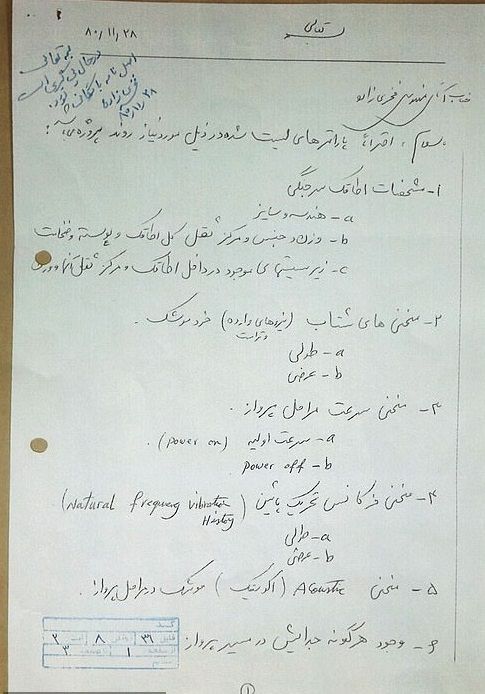 تعالی
۸۰/۱۱/۲۸
بسمه تعالی
در حال پی‌گیری است
اصل نامه بایگانی
فخری‌زاده
جناب آقای مهندس فخری‌زاده
سلام، احتراماً پارامترهای لیست شده در ذیل مورد نیاز روند پروژه می‌باشد:
۱- مشخصات اطاقک سرجنگی
a- هندسه و سایز
b- وزن و جنس و مرکز ثقل کل اطاقک و پوسته و ضخامت
c- زیرسیستمهای موجود در داخل اطاقک و مرکز ثقل آنها و وزن
۲- منحنی های شتاب (نیروهای وارده) خود موشک.
a- طولی
b- عرضی
۳- منحنی سرعت مراحل پرواز.
a- سرعت اولیه (power on).
b- power off
۴- منحنی فرکانس تحریک پائین (Natural frequency vibration History)
a- طولی
b- عرضی
۵- منحنی Acoustic (اکوستیک) موشک در مراحل پرواز.
۶- وجود هرگونه جدایش در مسیر پرواز
۱